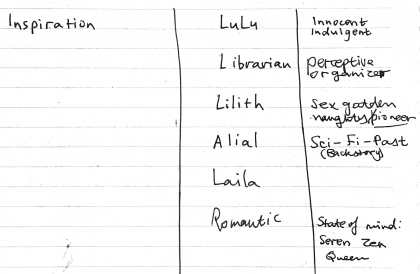 Inspiration
LuLu
Innocent
Indulgent
Librarian
perceptive
organizer
Lilith
Sex godden
naughty/pioneer
Alial
Sci-Fi-Past
(Backstory)
Laila
Romantic
State of mind:
Seren Zen
Queen